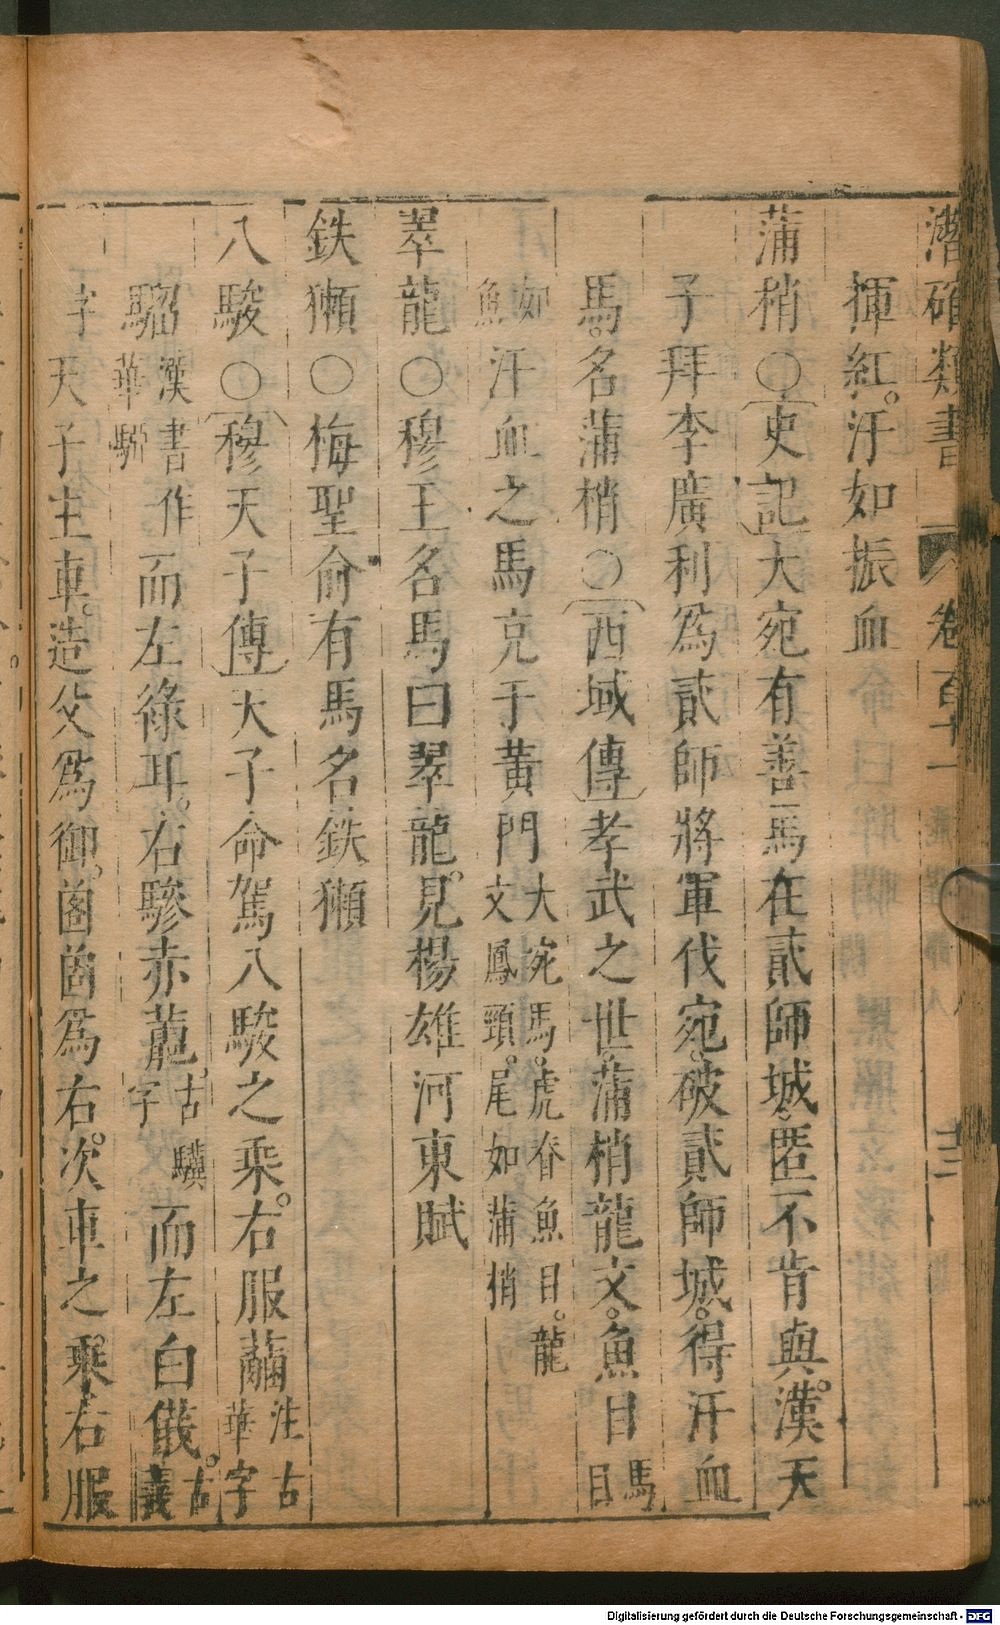 潛確類書 卷百十一 十三
揮紅。汗如振血
蒲梢○史記大宛有善馬在貳師城。匿不肯與。漢天
子拜李廣利爲貳師將軍伐宛。破貳師城。得汗血
馬。名蒲梢○西域傳孝武之世。蒲梢龍文。魚目馬目
如魚汗血之馬克于黃門大宛馬。虎脊魚目。龍文鳳頸。尾如蒲梢
翠龍○穆王名馬曰翠龍。見楊雄河東賦
鉄獺○梅聖俞有馬名鉄獺
八駿○穆天子傳天子命駕八駿之乘。右服𦽊注古華字
騮漢書作華騮而左綠耳。右驂赤蘎。古驥字而左白儀。古義
字天子主車。造父爲御。𦮼𠱾爲右。次車之乘。右服
Digitalisierung gefördert durch die Deutsche Forschungsgemeinschaft - DFG